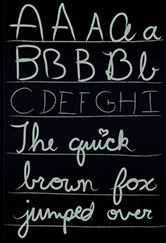 A A A a a
B B B B b
C D E F G H I
The quick
brown fox
jumped over